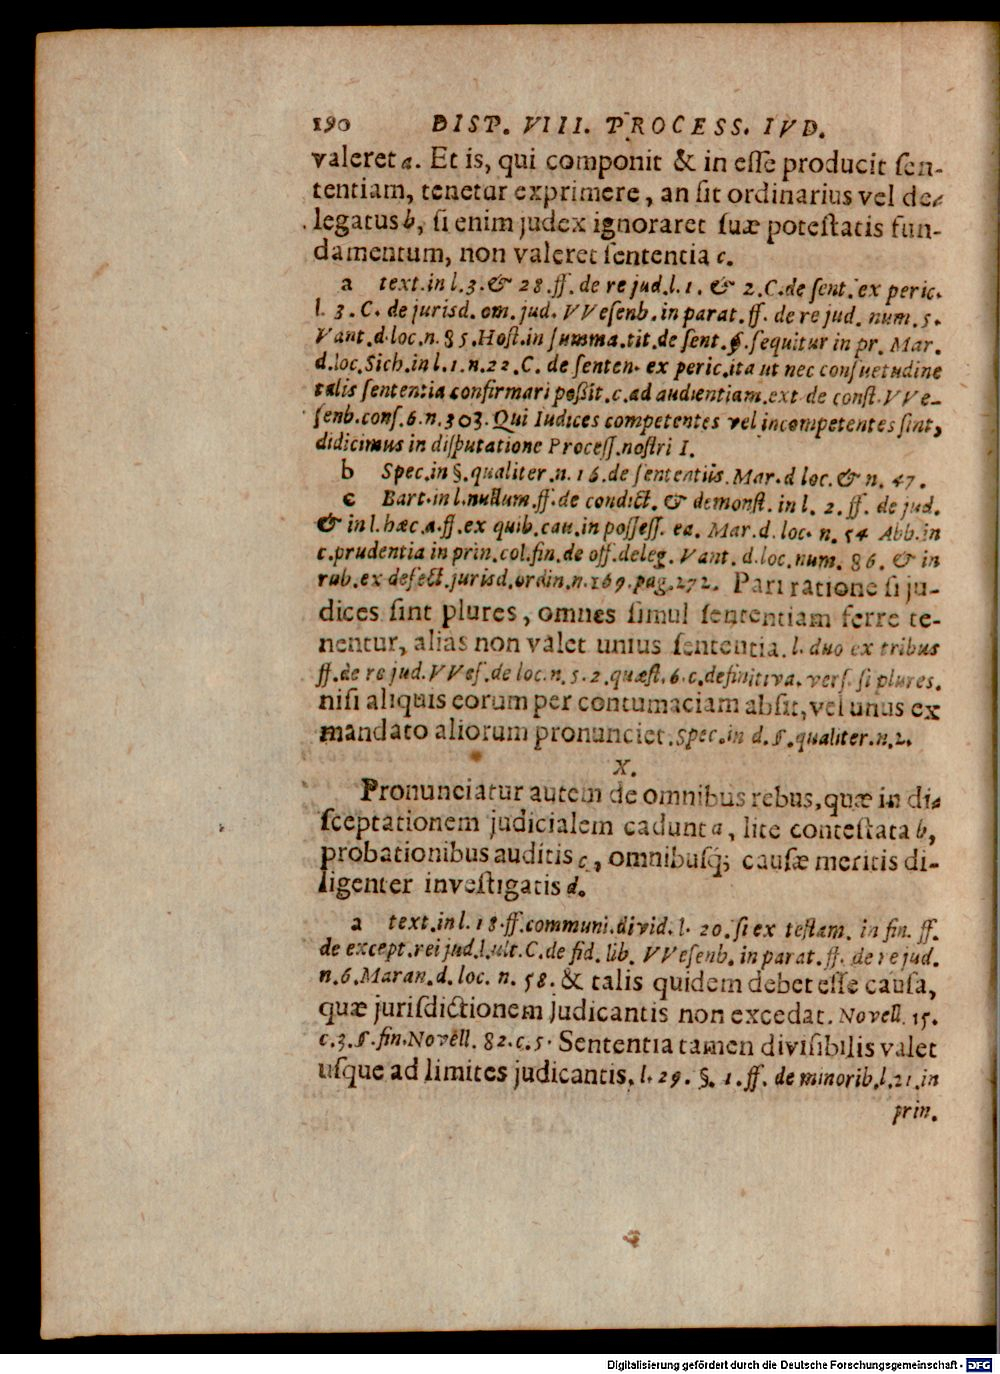 190 DISP. VIII. PROCESS. IVD.
valeret a. Et is, qui componit & in esse producit sen-
tentiam, tenetur exprimere, an sit ordinarius vel de-
legatus b, si enim judex ignoraret suæ potestatis fun-
damentum, non valeret sententia c.
a text. in l. 3. & 28. ff. de re jud. l. 1. & 2. C. de sent. ex peric.
l. 3. C. de jurisd. om. jud. VVesenb. in parat. ff. de re jud. num. 5.
Vant. d. loc. n. 85. Host. in summa. tit. de sent. §. sequitur in pr. Mar.
d. loc. Sich. in l. 1. n. 22. C. de senten. ex peric. ita ut nec consuetudine
talis sententia confirmari possit. c. ad audientiam. ext de const. VVe-
senb. cons. 6. n. 303. Qui Iudices competentes vel incompetentes sint,
didicimus in disputatione Process. nostri I.
b Spec. in §. qualiter. n. 16. de sententiis. Mar. d loc. & n. 47.
c Bart. in l. nullum. ff. de condict. & demonst. in l. 2. ff. de jud.
& in l. hæc. a. ff. ex quib. cau. in possess. ea. Mar. d. loc. n. 54 Abb. in
c. prudentia in prin. col. fin. de off. deleg. Vant. d. loc. num. 86. & in
rub. ex defect. jurisd. ordin. n. 169. pag. 272. Pari ratione si ju-
dices sint plures, omnes simul sententiam ferre te-
nentur, alias non valet unius sententia. l. duo ex tribus
ff. de re jud. VVes. de loc. n. 5. 2. quæst. 6. c. definitiva. vers. si plures.
nisi aliquis eorum per contumaciam absit, vel unus ex
mandato aliorum pronunciet. Spec. in d. §. qualiter. n. 2.
X.
Pronunciatur autem de omnibus rebus, quæ in di-
sceptationem judicialem cadunt a, lite contestata b,
probationibus auditis c, omnibusq; causæ meritis di-
ligenter investigatis d.
a text. in l. 18. ff. communi. divid. l. 20. si ex testam. in fin. ff.
de except. rei jud. l. ult. C. de fid. lib. VVesenb. in parat. ff. de re jud.
n. 6. Maran. d. loc. n. 58. & talis quidem debet esse causa,
quæ jurisdictionem judicantis non excedat. Novell. 15.
c. 3. §. fin. Novell. 82. c. 5. Sententia tamen divisibilis valet
usque ad limites judicantis, l. 29. §. 1. ff. de minorib. l. 21. in
prin.
Digitalisierung gefördert durch die Deutsche Forschungsgemeinschaft - DFG